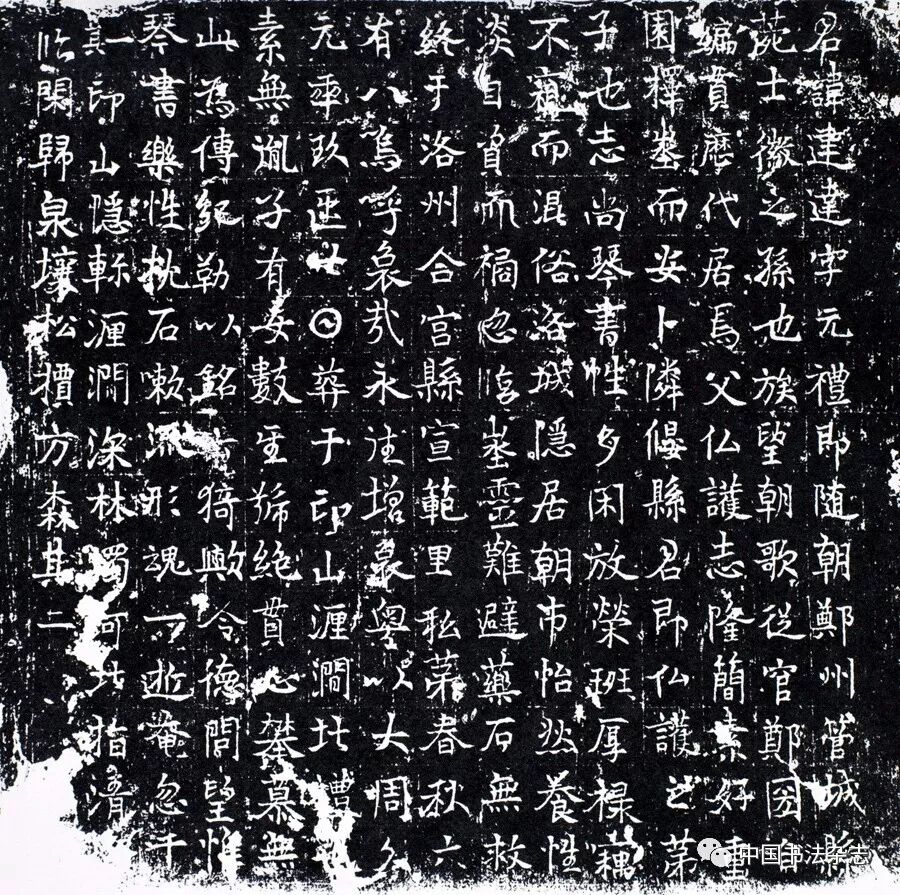 君諱建達字元禮即隨朝鄭州管城縣
菀士徵之孫也族望朝歌從官鄭圀
編貫代居焉父仏護志隆簡素好重
園擇而安卜隣偃縣君即仏護之苐
子也志尚琴書性多閑放榮班厚祿藕
不窺而混俗洛城隱居朝市怡然養性
炎自資而禍忽埊靈難避藥石無救
終于洛州合宮縣宣範里私苐春秋六
有八嗚呼哀哉永往增哀粵以大周久
元𠡦玖𠥱廿𡆠葬于邙山湹澗北禮
素無胤子有女數𤯔號絕貫心攀慕無
山為傳紀勒以銘云猗歟令德問望惟
琴書樂性枕石嗽流形魂一逝奄忽千
其一邙山隱軫湹澗深林獨河北指清
臨關歸泉壤松檟方森其二
中国书法杂志